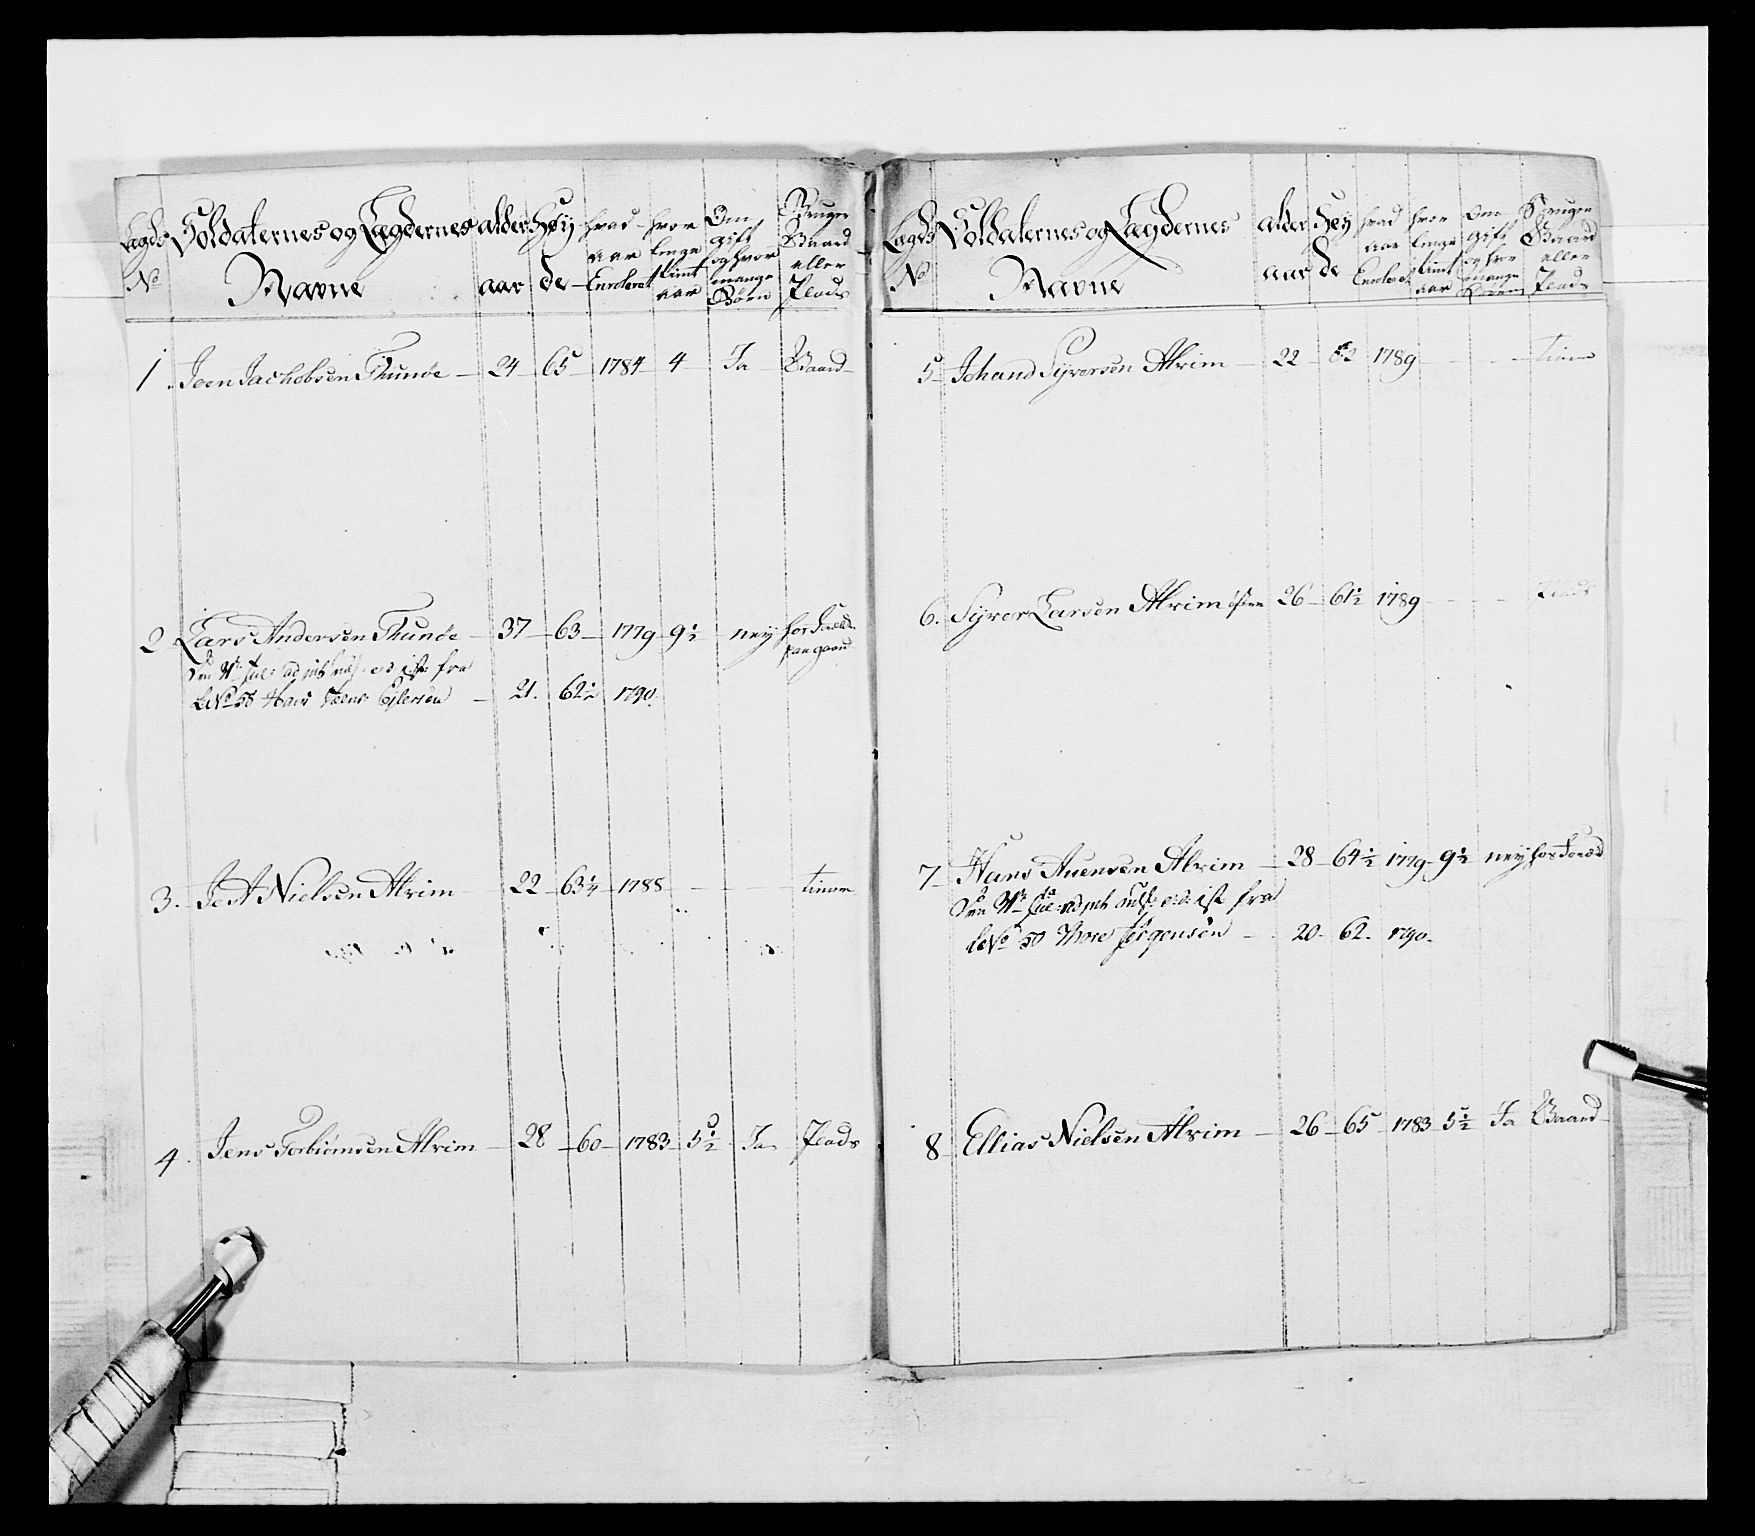 Lægds Soldaternes og Lægdernes alder Høy hvad hvor Om Bruger
No Navne aar de aar længe gift Gaard
Enrolert tient og hvor eller
aar mange Plads
Børn
1. Joen Jachobsen Thunøe 24 65 1784 4 Ja Gaard
2 Lars Andersen Thunøe 37 63 1779 9½ ney
fra
21. 62½ 1790.
3. Nielsen Alrim 22 63¼ 1788 tiener
4. Jens Torbiørnsen Alrim 28 60 1783 5½ Ja Plads
Lægds Soldaternes og Lægdernes alder Høy hvad hvor Om Bruger
No Navne aar de aar længe gift Gaard
Enrolert tient og hvor eller
aar mange Plads
Børn
5 Johand Syversen Alrim 22 62 1789 tiener
6. Syver Larsen Alrim 26 61½ 1789 Plads
7 Hans Auensen Alrim 28 64½ 1779 9½ ney hos
fra
No 50 Thore Jørgensen 20. 62. 1790.
8 Ellias Nielsen Alrim 26 65 1783 5½ Ja Gaard